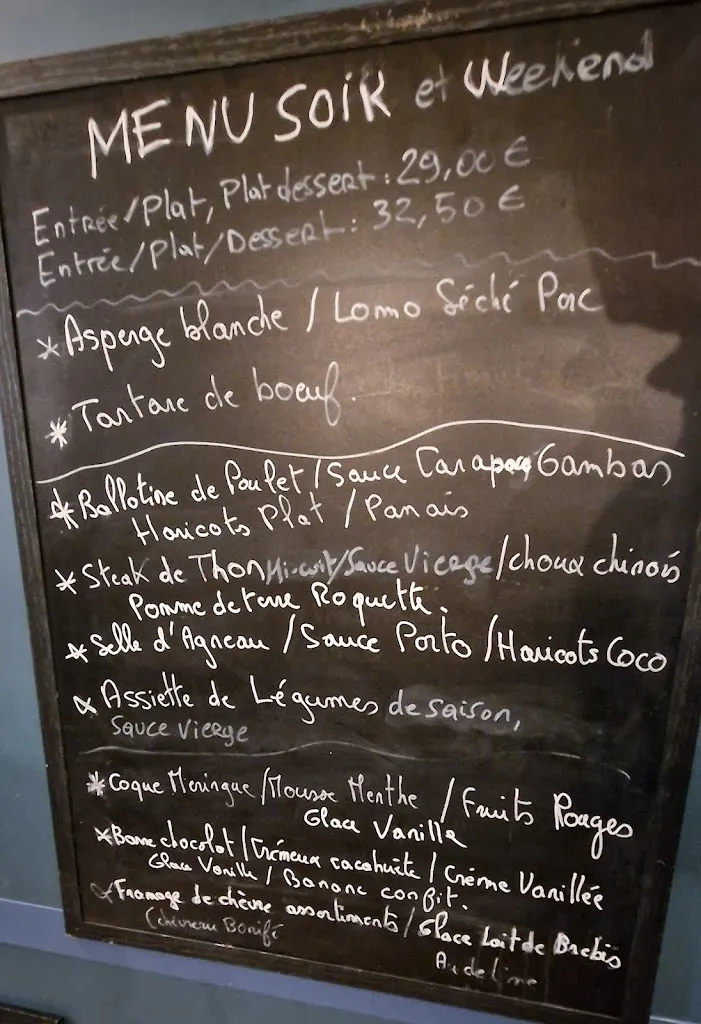 MENU SOIR et Weekend
Entrée/Plat, Plat dessert : 29,00 €
Entrée/Plat/Dessert : 32,50 €
* Asperge blanche / Lomo Séché Porc
* Tartare de boeuf.
* Ballotine de Poulet / Sauce Carapace Gambas
Haricots Plat / Panais
* Steak de Thon Mi-cuit/Sauce Vierge/choux chinois
Pomme de terre Roquette.
* Selle d'Agneau / Sauce Porto / Haricots Coco
* Assiette de Légumes de saison,
Sauce Vierge
* Coque Meringue / Mousse Menthe / Fruits Rouges
Glace Vanille
* Barre chocolat / Crémeux cacahuète / Crème Vanillée
Glace Vanille / Banane confit.
* Fromage de chèvre assortiments / Glace Lait de Brebis